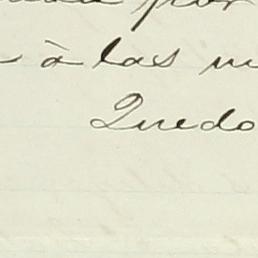 por
à las
Quedo